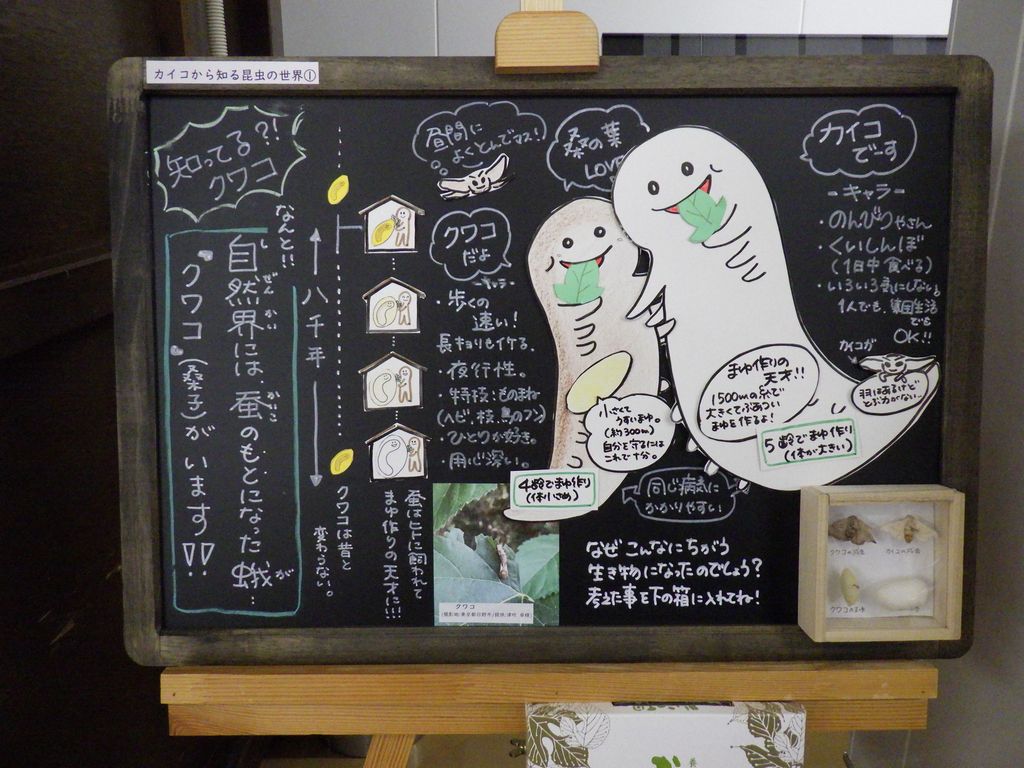 カイコから知る昆虫の世界①
知ってる?!
クワコ
なんと!!
自然界には、蚕のもとになった蛾が…
しぜんかい
かいこ
"クワコ(桑子)がいます!!
八千年
クワコは昔と
変わらない。
蚕はヒトに飼われて
まゆ作りの天才に!!!
昼間に
よくとんでマス!
クワコ
だよ
-キャラ-
・歩くの
速い!
長キョリもイケる。
・夜行性。
・特技:ものまね
(ヘビ、枝、鳥のフン)
・ひとりが好き。
・用心深い。
桑の葉
LOVE
カイコ
でーす
-キャラ-
・のんびりやさん
・くいしんぼ
(1日中食べる)
・いろいろ気にしない。
1人でも、集団生活
でも
OK!!
カイコガ
羽はあるけど
とぶ力がない…
まゆ作りの
天才!!
1500mの糸で
大きくてぶあつい
まゆを作るよ!
5齢でまゆ作り
(体が大きい)
小さくて
うすいまゆ。
(約300m)
自分を守るには
これで十分。
4齢でまゆ作り
(体小さめ)
同じ病気に
かかりやすい
なぜこんなにちがう
生き物になったのでしょう?
考えた事を下の箱に入れてね!
クワコ
クワコの成虫
カイコの成虫
クワコのまゆ